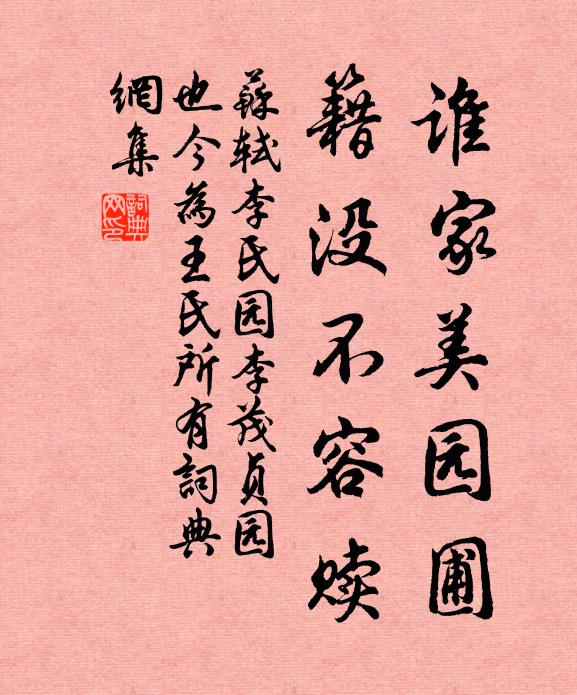 谁家美园圃
籍没不容赎
蘇轼李氏园李茂贞园
也今為王氏所有詞典
網集
詞典网印